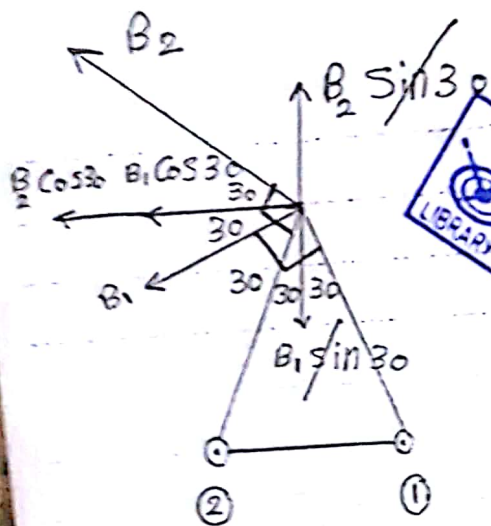 B2
B2 Sin30
LIBRARY
B2 Cos30 B1 Cos30
30
30
B1
30 30 30
B1 Sin30
② ①